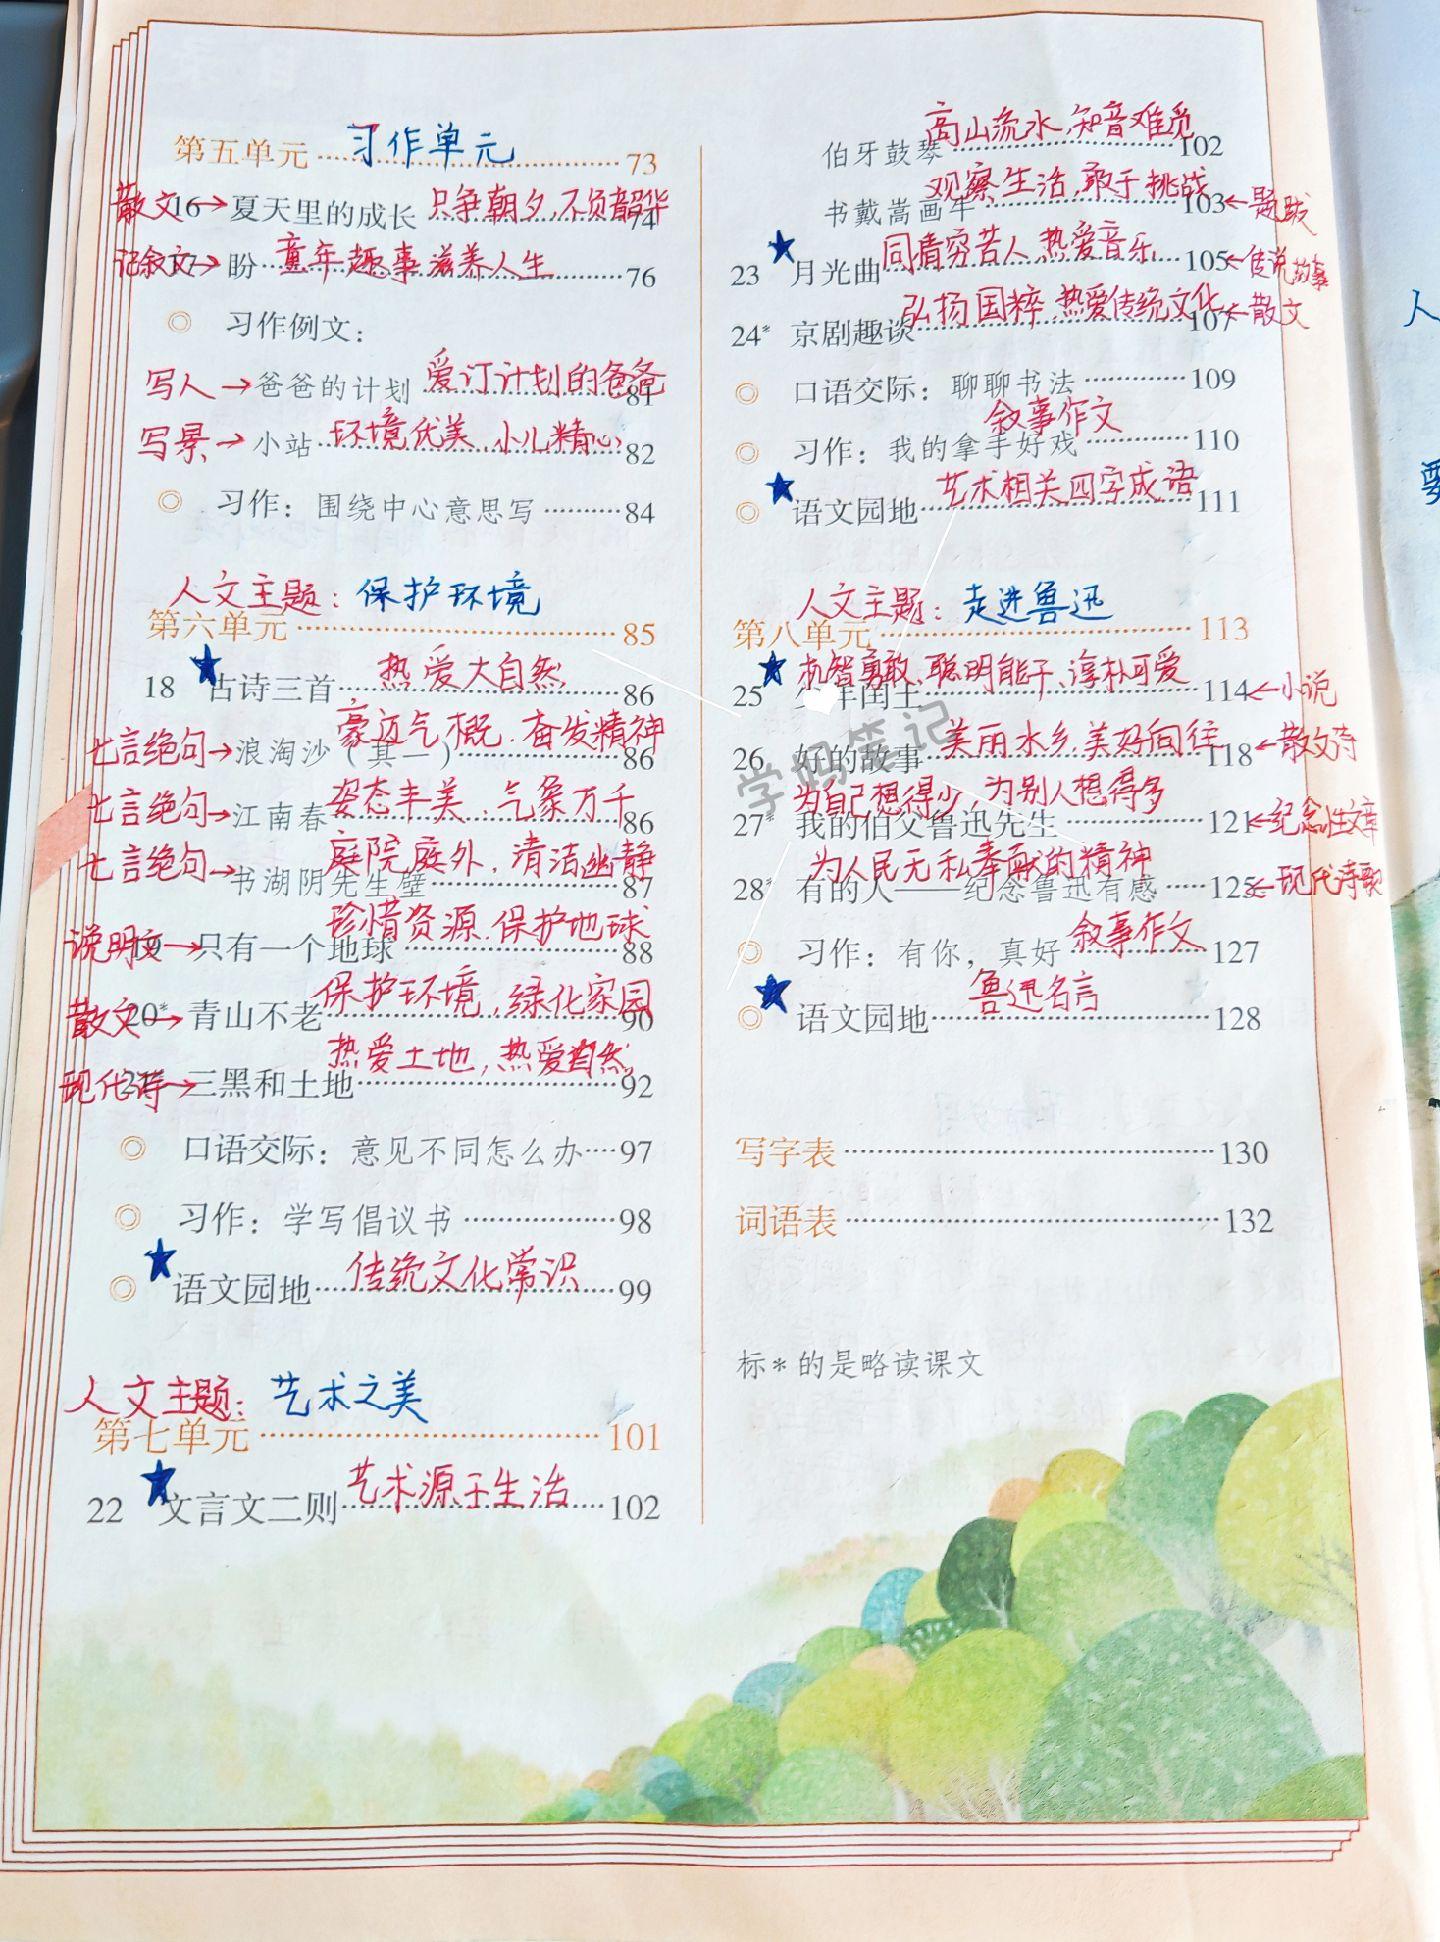 习作单元
第五单元 73
散文→16 夏天里的成长 只争朝夕,不负韶华 74
记叙文→17 盼 童年趣事滋养人生 76
◎ 习作例文:
写人→爸爸的计划 爱订计划的爸爸 81
写景→小站 环境优美、小儿精心 82
◎ 习作:围绕中心意思写 84
人文主题:保护环境
第六单元 85
★
18 古诗三首 热爱大自然 86
豪迈气概、奋发精神
七言绝句→浪淘沙(其一) 86
姿态丰美、气象万千
七言绝句→江南春 86
庭院庭外,清洁幽静
七言绝句→书湖阴先生壁 87
珍惜资源、保护地球
说明文→19 只有一个地球 88
保护环境,绿化家园
散文→20* 青山不老 90
热爱土地,热爱自然
现代诗→21 三黑和土地 92
◎ 口语交际:意见不同怎么办 97
◎ 习作:学写倡议书 98
★
◎ 语文园地 传统文化常识 99
人文主题:艺术之美
第七单元 101
★
22 文言文二则 艺术源于生活 102
高山流水、知音难觅
伯牙鼓琴 102
观察生活,敢于挑战
书戴嵩画牛 103←题跋
★ 同情穷苦人 热爱音乐
23 月光曲 105←传说故事
弘扬国粹,热爱传统文化
24* 京剧趣谈 107←散文
◎ 口语交际:聊聊书法 109
叙事作文
◎ 习作:我的拿手好戏 110
★ 艺术相关四字成语
◎ 语文园地 111
人文主题:走进鲁迅
第八单元 113
★ 机智勇敢、聪明能干、淳朴可爱
25 少年闰土 114←小说
美丽水乡、美好向往
26 好的故事 118←散文诗
为自己想得少,为别人想得多
27* 我的伯父鲁迅先生 121←纪念性文章
为人民无私奉献的精神
28* 有的人——纪念鲁迅有感 125←现代诗歌
◎ 习作:有你,真好 叙事作文 127
★ 鲁迅名言
◎ 语文园地 128
写字表 130
词语表 132
标*的是略读课文
学妈笔记